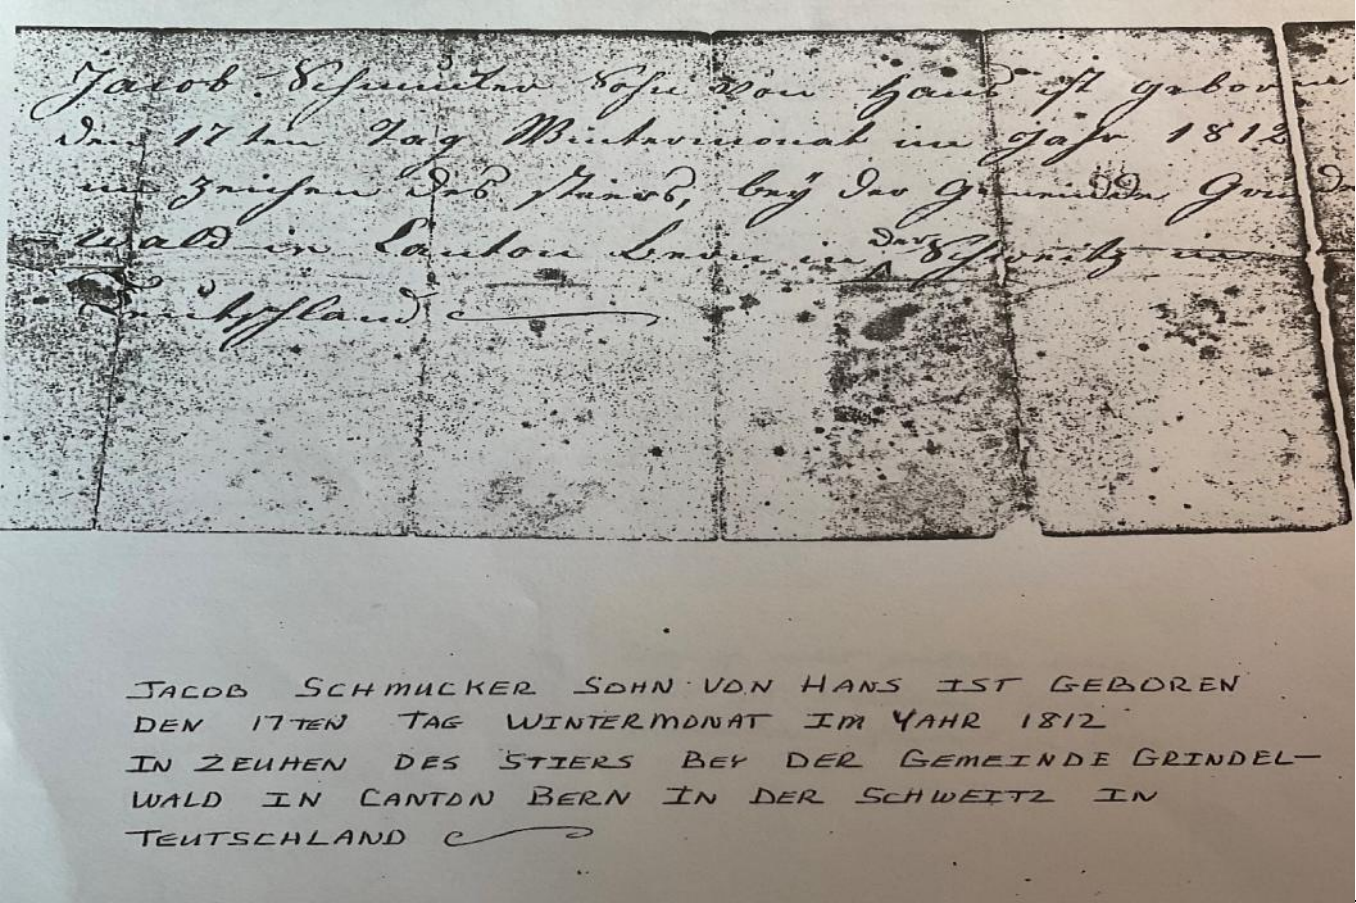 Jacob Schmucker Sohn von Hans ist geboren
den 17ten Tag Wintermonat im Jahr 1812
im Zeichen des stiers, bey der Gemeindde Grindel
wald in Canton Bern in der Schweitz in
Teutschland
JACOB SCHMUCKER SOHN VON HANS IST GEBOREN
DEN 17TEN TAG WINTERMONAT IM YAHR 1812
IN ZEUHEN DES STIERS BEY DER GEMEINDE GRINDEL—
WALD IN CANTON BERN IN DER SCHWEITZ IN
TEUTSCHLAND